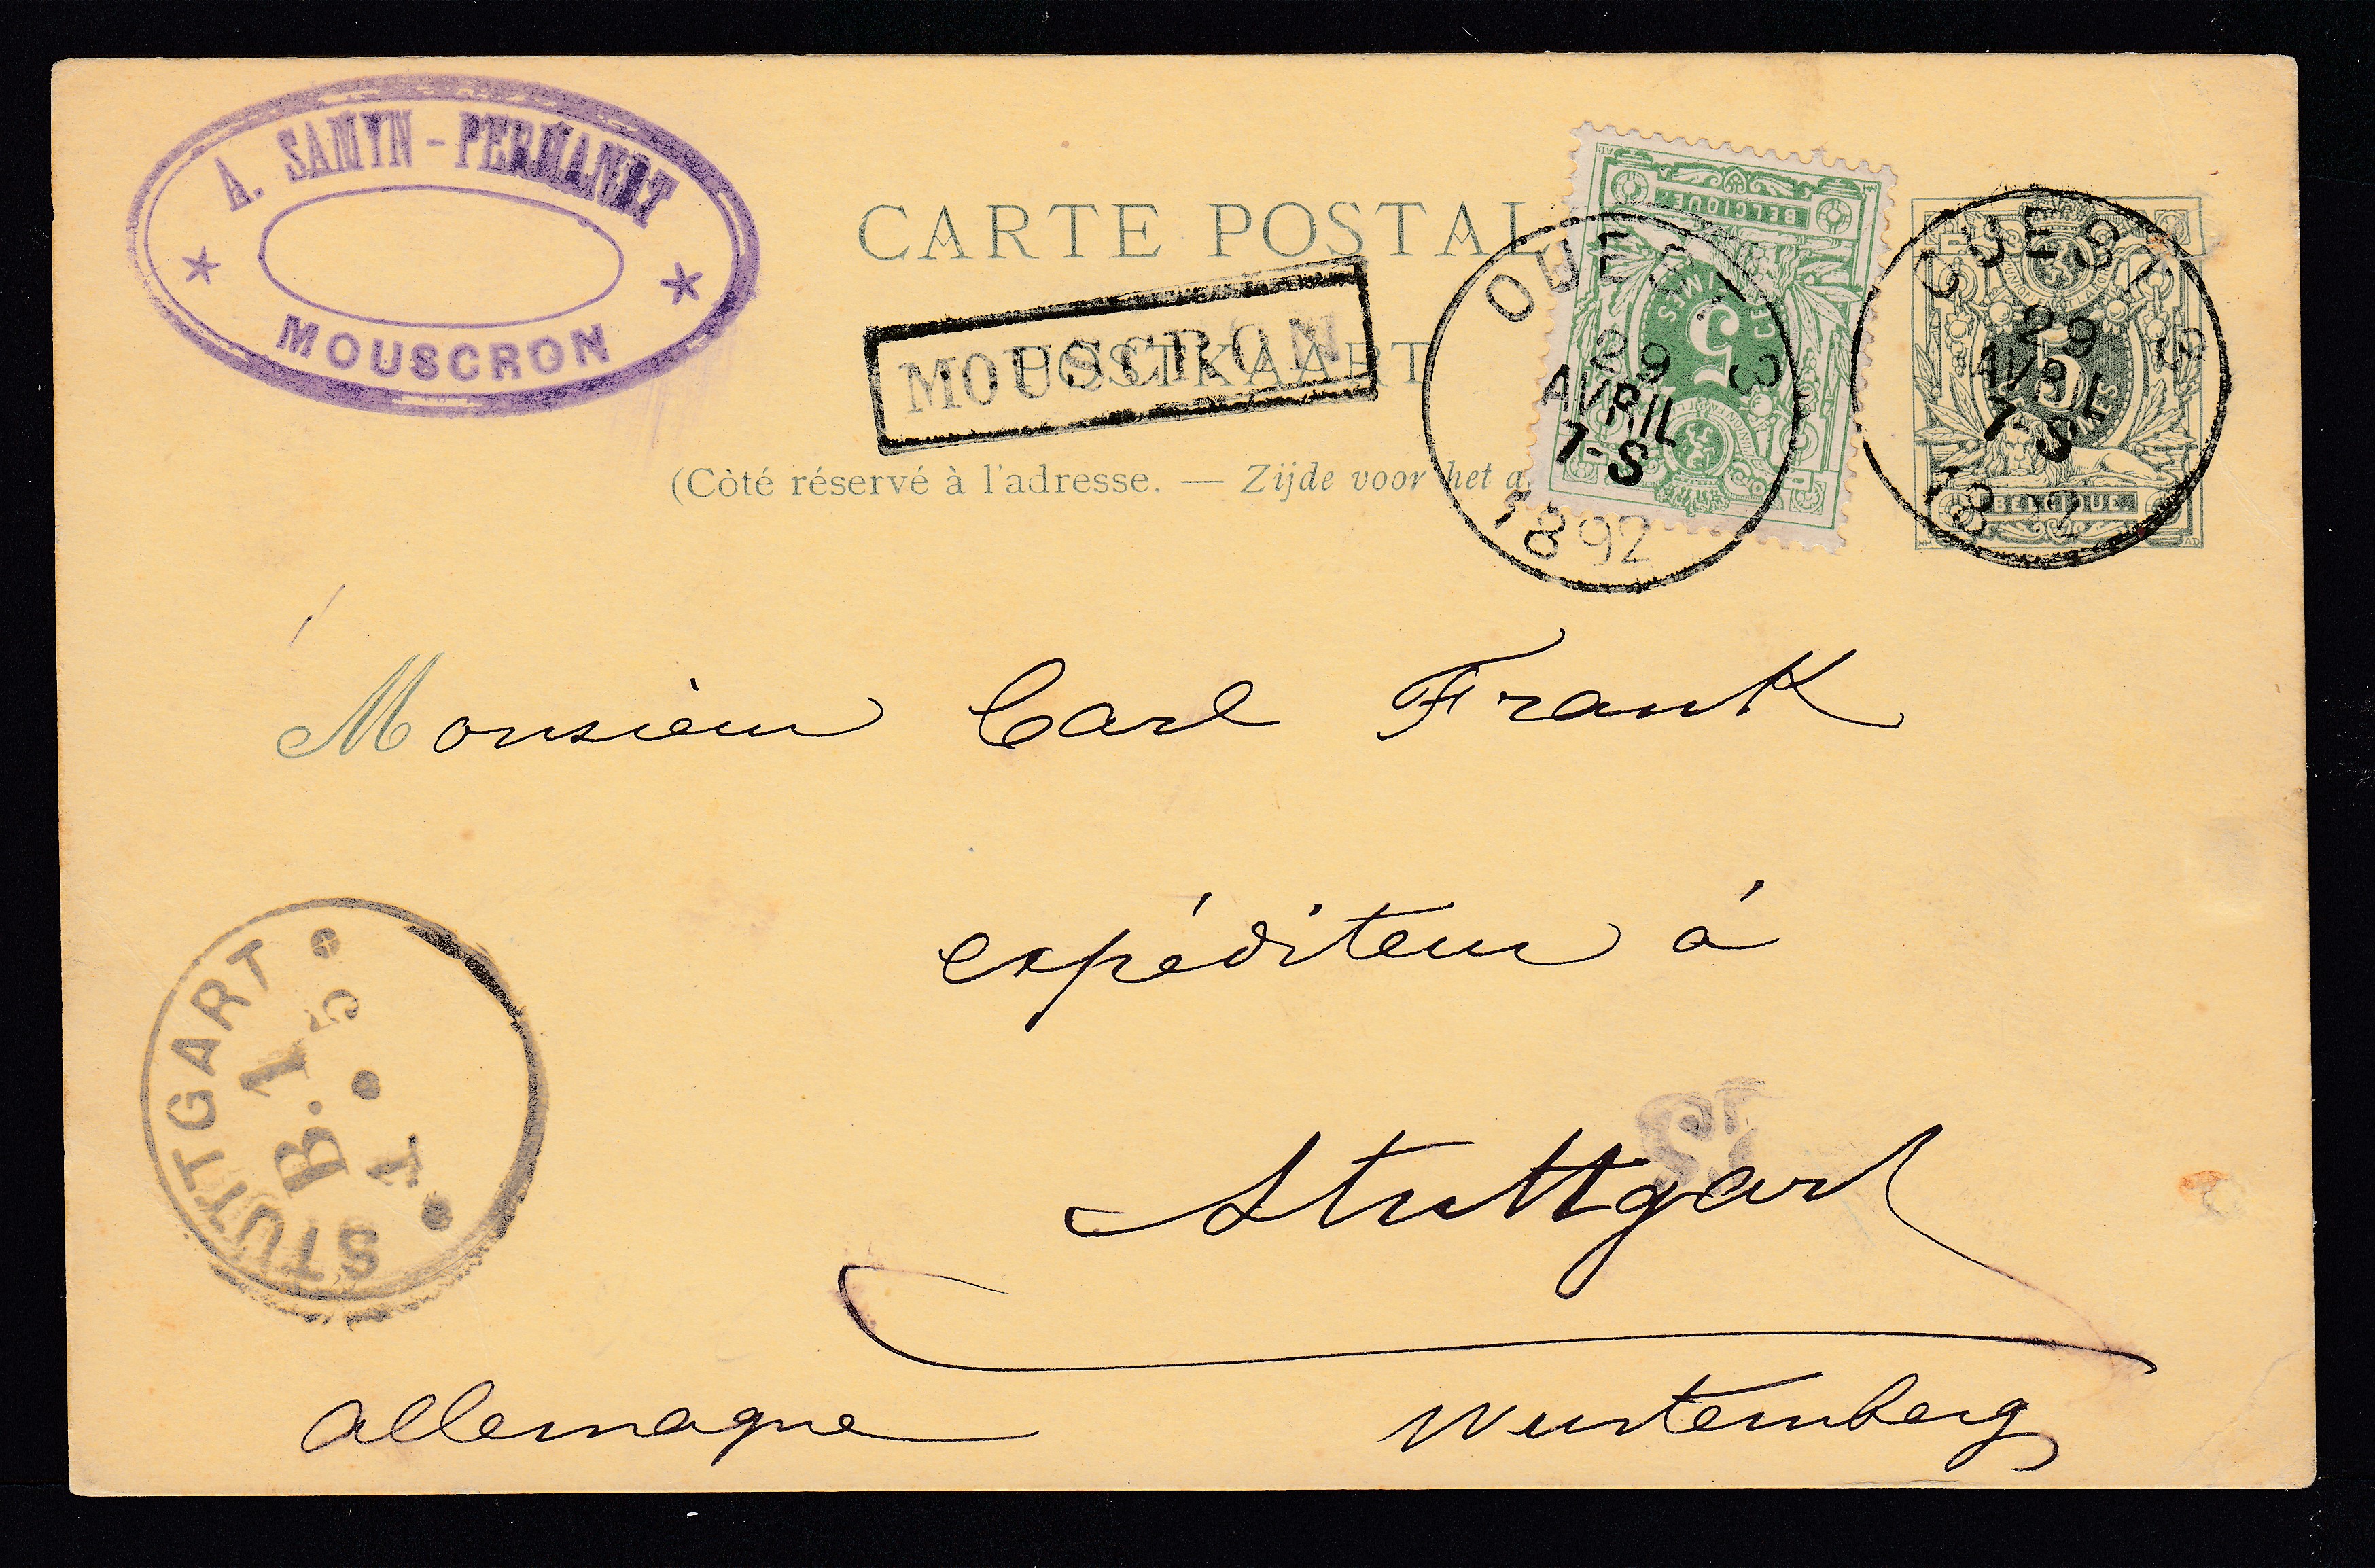 A. SAMYN - PERMANDT
MOUSCRON
CARTE POSTAL
MOUSCRON
POSTKAART
(Côté réservé à l'adresse. — Zijde voor het a
BELGIQUE
5
CENTIMES
OUEST 3
29
AVRIL
7-S
1892
OUEST 3
29
AVRIL
7-S
1892
5
BELGIQUE
Monsieur Carl Frank
expéditeur à
Stuttgart
Wurtemberg
allemagne
STUTTGART
B.1
1 • 5